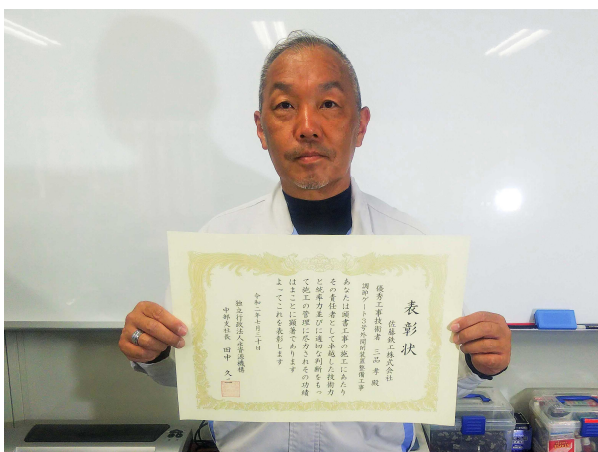 表彰状
佐藤鉄工株式会社
優秀工事技術者 三品 孝 殿
調節ゲート3号外開閉装置整備工事
あなたは頭書工事の施工にあたり
その責任者として卓越した技術力
と統率力並びに適切な判断をもっ
て施工の管理に尽力されその功績
はまことに顕著であります
よってこれを表彰します
令和二年七月二十日
独立行政法人水資源機構
中部支社長 田中 久二